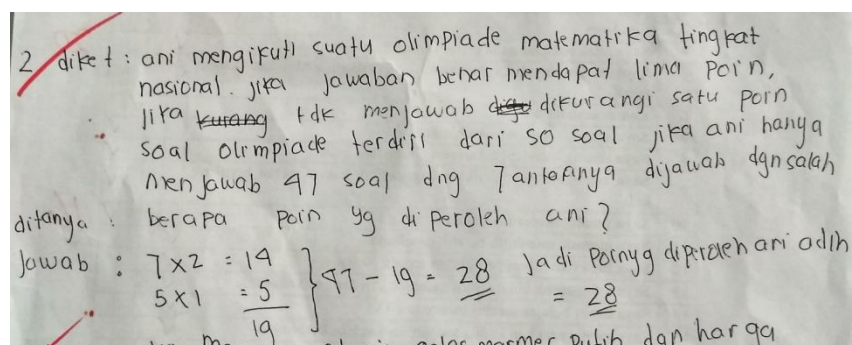 2 diket : ani mengikuti suatu olimpiade matematika tingkat
nasional. jika jawaban benar mendapat lima poin,
jika kurang tdk menjawab dikurangi satu poin
soal olimpiade terdiri dari 50 soal jika ani hanya
menjawab 47 soal dng 7 antaranya dijawab dgn salah
ditanya : berapa poin yg di peroleh ani?
Jawab : 7 x 2 = 14
5 x 1 = 5
19
} 47 - 19 = 28 Jadi poin yg diperoleh ani adlh
= 28
marmer putih dan harga